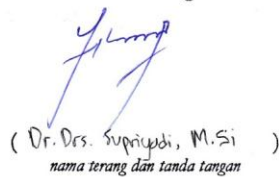 ( Dr. Drs. Supriyadi, M.Si )
nama terang dan tanda tangan